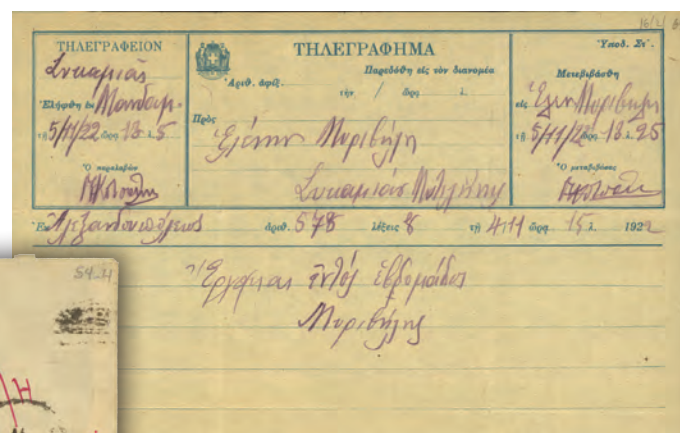 16/4
ΤΗΛΕΓΡΑΦΕΙΟΝ
Συκαμιάς
Ἐλήφθη ἐκ Μανταμ.
τῇ 5/11/22 ὥρᾳ 18 λ. 5
Ὁ παραλαβὼν
ΤΗΛΕΓΡΑΦΗΜΑ
Παρεδόθη εἰς τὸν διανομέα
Ἀριθ. ἀφίξ.
τὴν / ὥρᾳ λ.
Πρὸς
Ἑλένην Μυριβήλη
Συκαμιὰν Μυτιλήνης
Ὑποδ. Στ΄.
Μετεβιβάσθη
εἰς Ἑλέν Μυριβήλη
τῇ 5/11/22 ὥρᾳ 18 λ. 25
Ὁ μεταβιβάσας
Ἐξ Ἀλεξανδρουπόλεως ἀριθ. 578 λέξεις 8 τῇ 4/11 ὥρᾳ 15 λ. 1922
Ἔρχομαι ἐντὸς ἑβδομάδος
Μυριβήλης
S4-4
Η